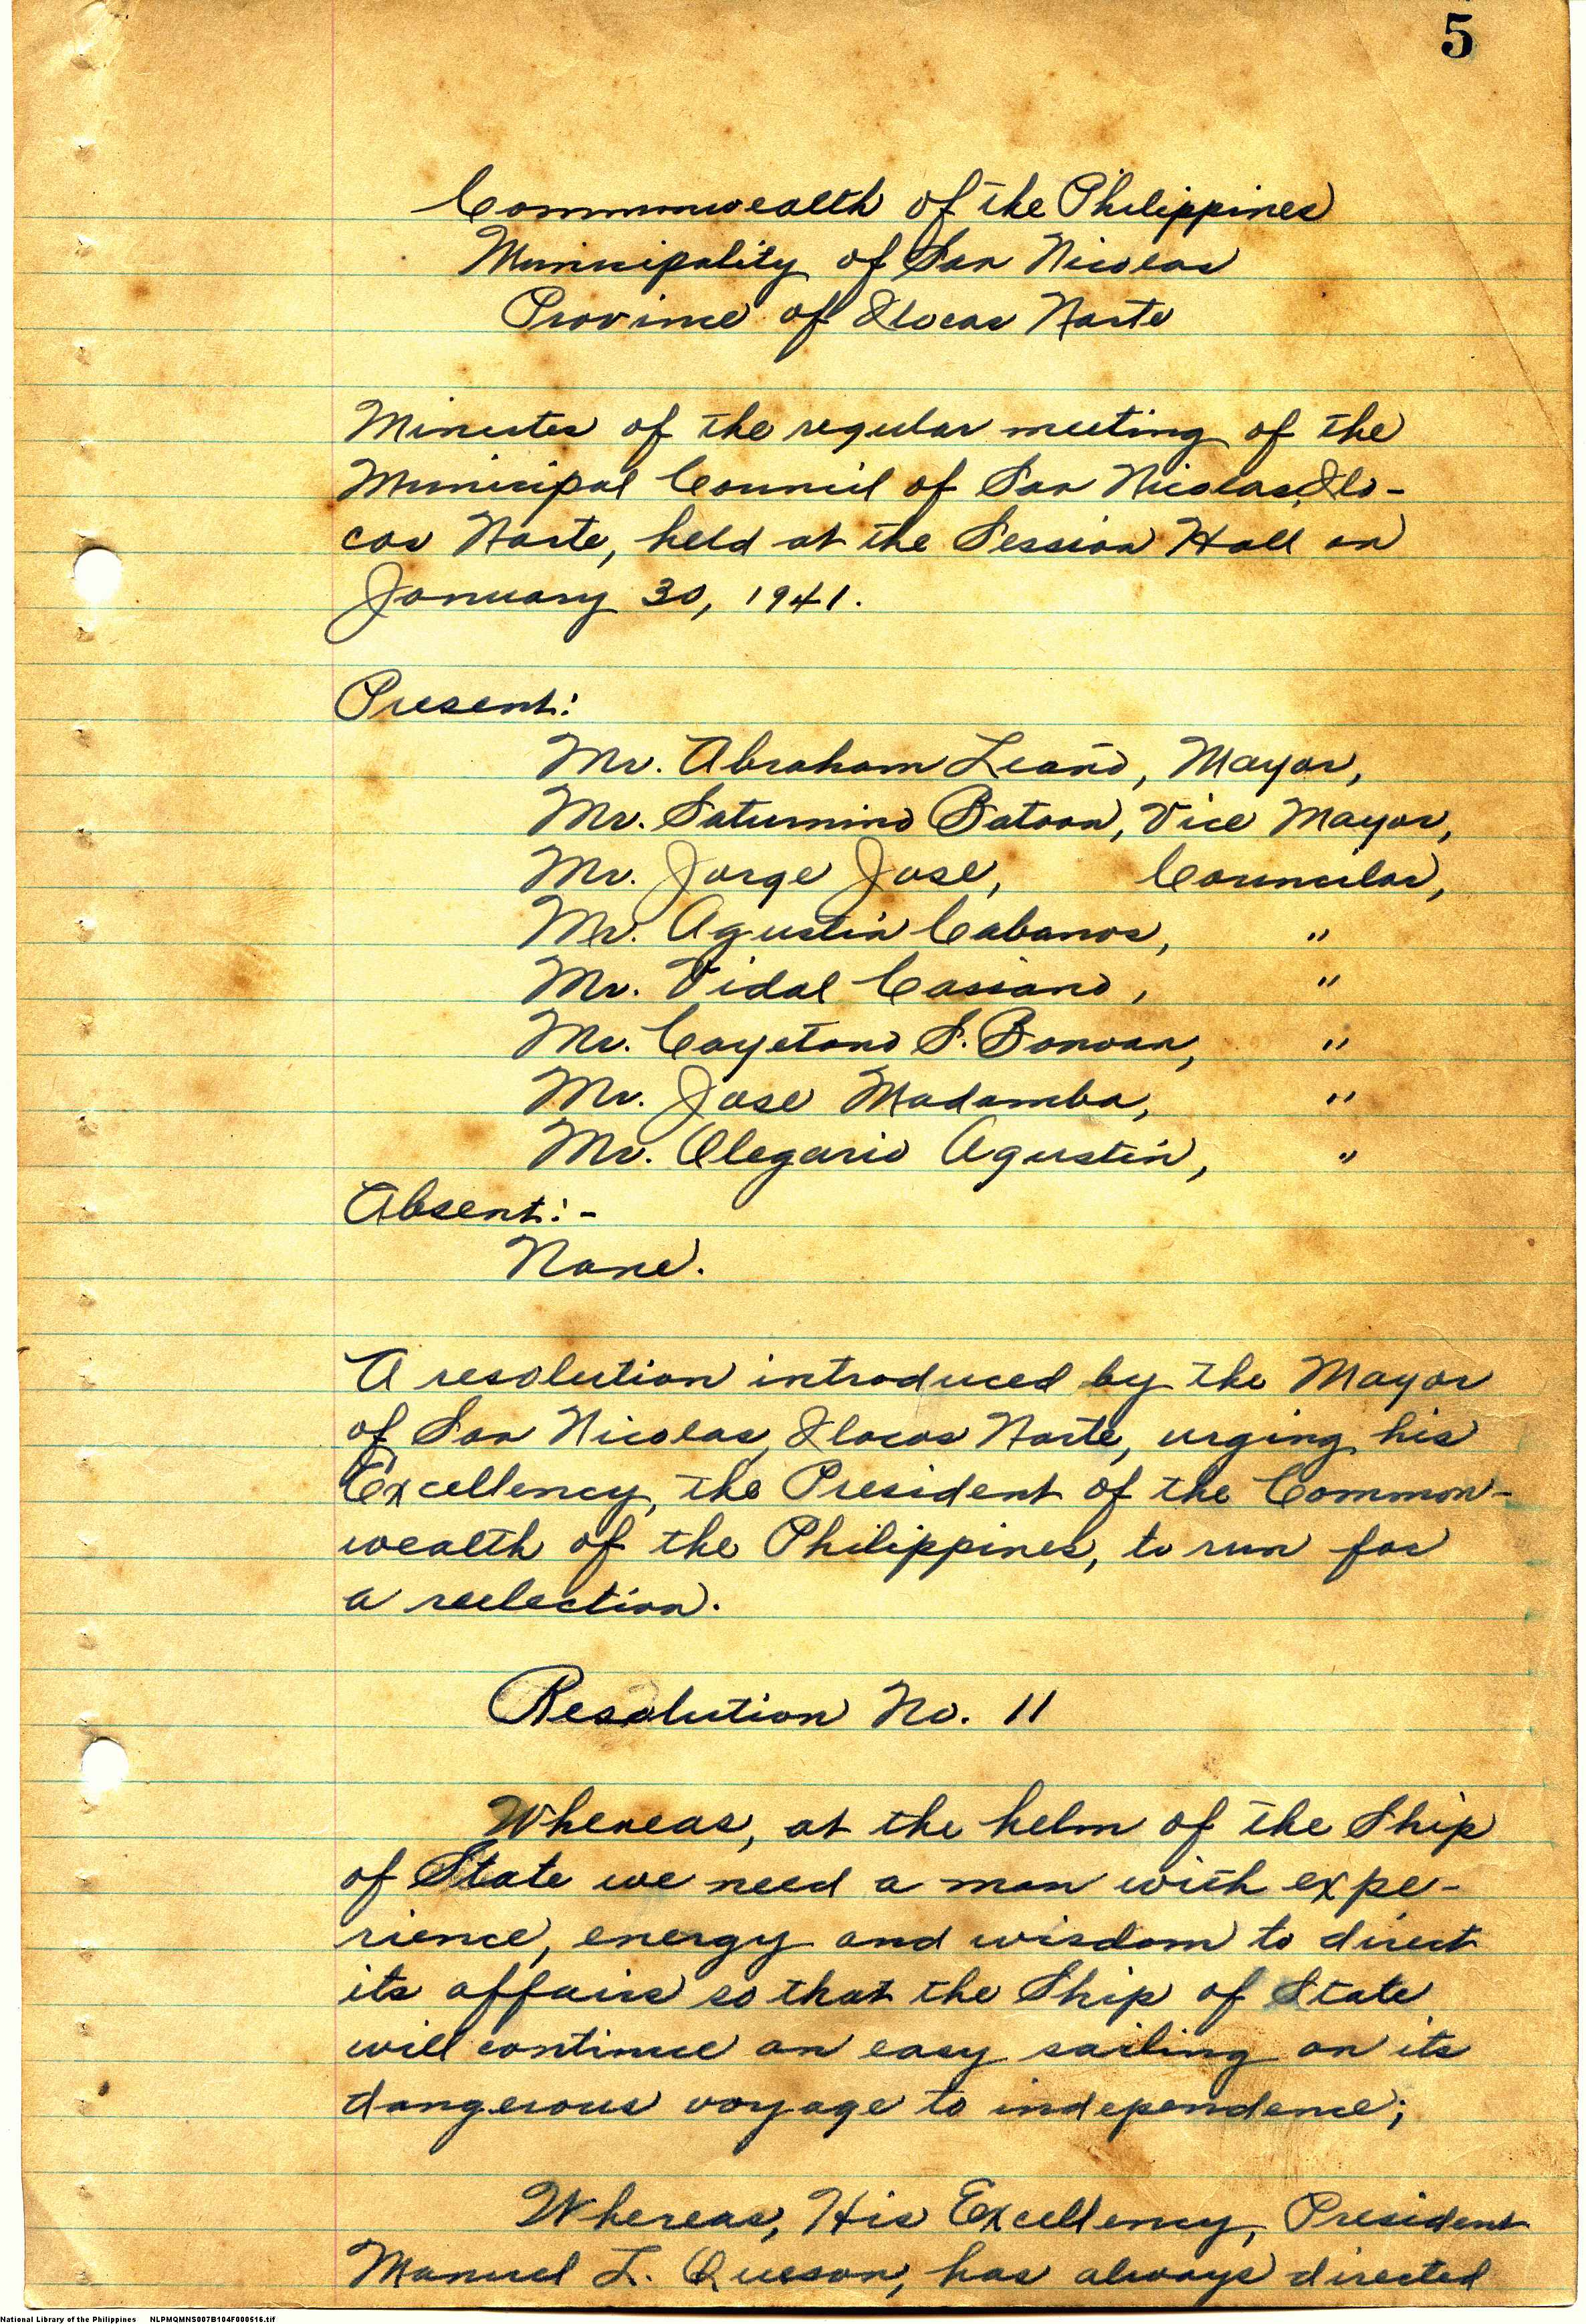 5
Commonwealth of the Philippines
Municipality of San Nicolas
Province of Ilocos Norte
Minutes of the regular meeting of the
Municipal Council of San Nicolas, Ilo-
cos Norte, held at the Session Hall on
January 30, 1941.
Present:
Mr. Abraham Leaño, Mayor,
Mr. Saturnino Batoon, Vice Mayor,
Mr. Jorge Jose, Councilor,
Mr. Agustin Cabanos, "
Mr. Vidal Casiano, "
Mr. Cayetano S. Bonoan, "
Mr. Jose Madamba, "
Mr. Olegario Agustin, "
Absent:-
None.
A resolution introduced by the Mayor
of San Nicolas, Ilocos Norte, urging his
Excellency, the President of the Common-
wealth of the Philippines, to run for
a reelection.
Resolution No. 11
Whereas, at the helm of the Ship
of State we need a man with expe-
rience, energy and wisdom to direct
its affairs so that the Ship of State
will continue an easy sailing on its
dangerous voyage to independence;
Whereas, His Excellency, President
Manuel L. Queson, has always directed
National Library of the Philippines NLPMQMNS007B104F000516.tif